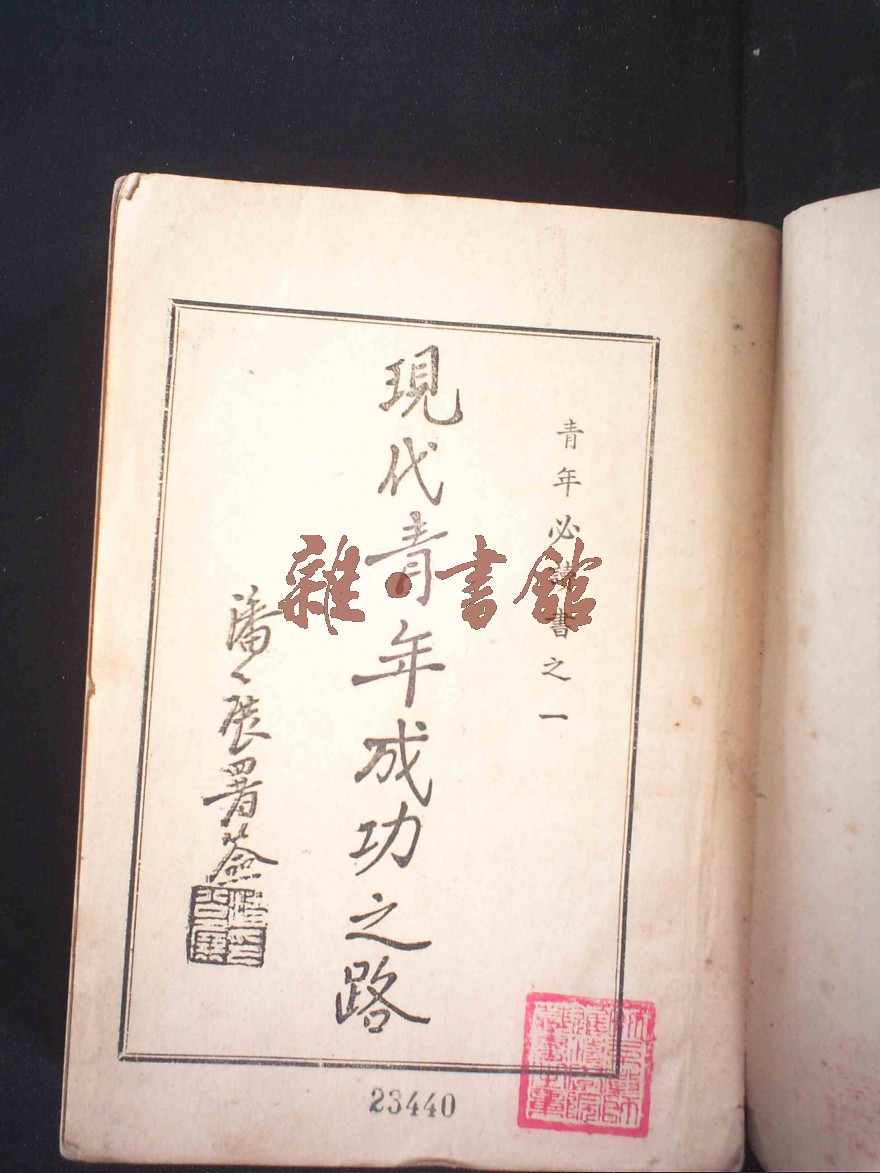 青年必讀書之一
現代青年成功之路
潘公展署簽
雜·書館
23440